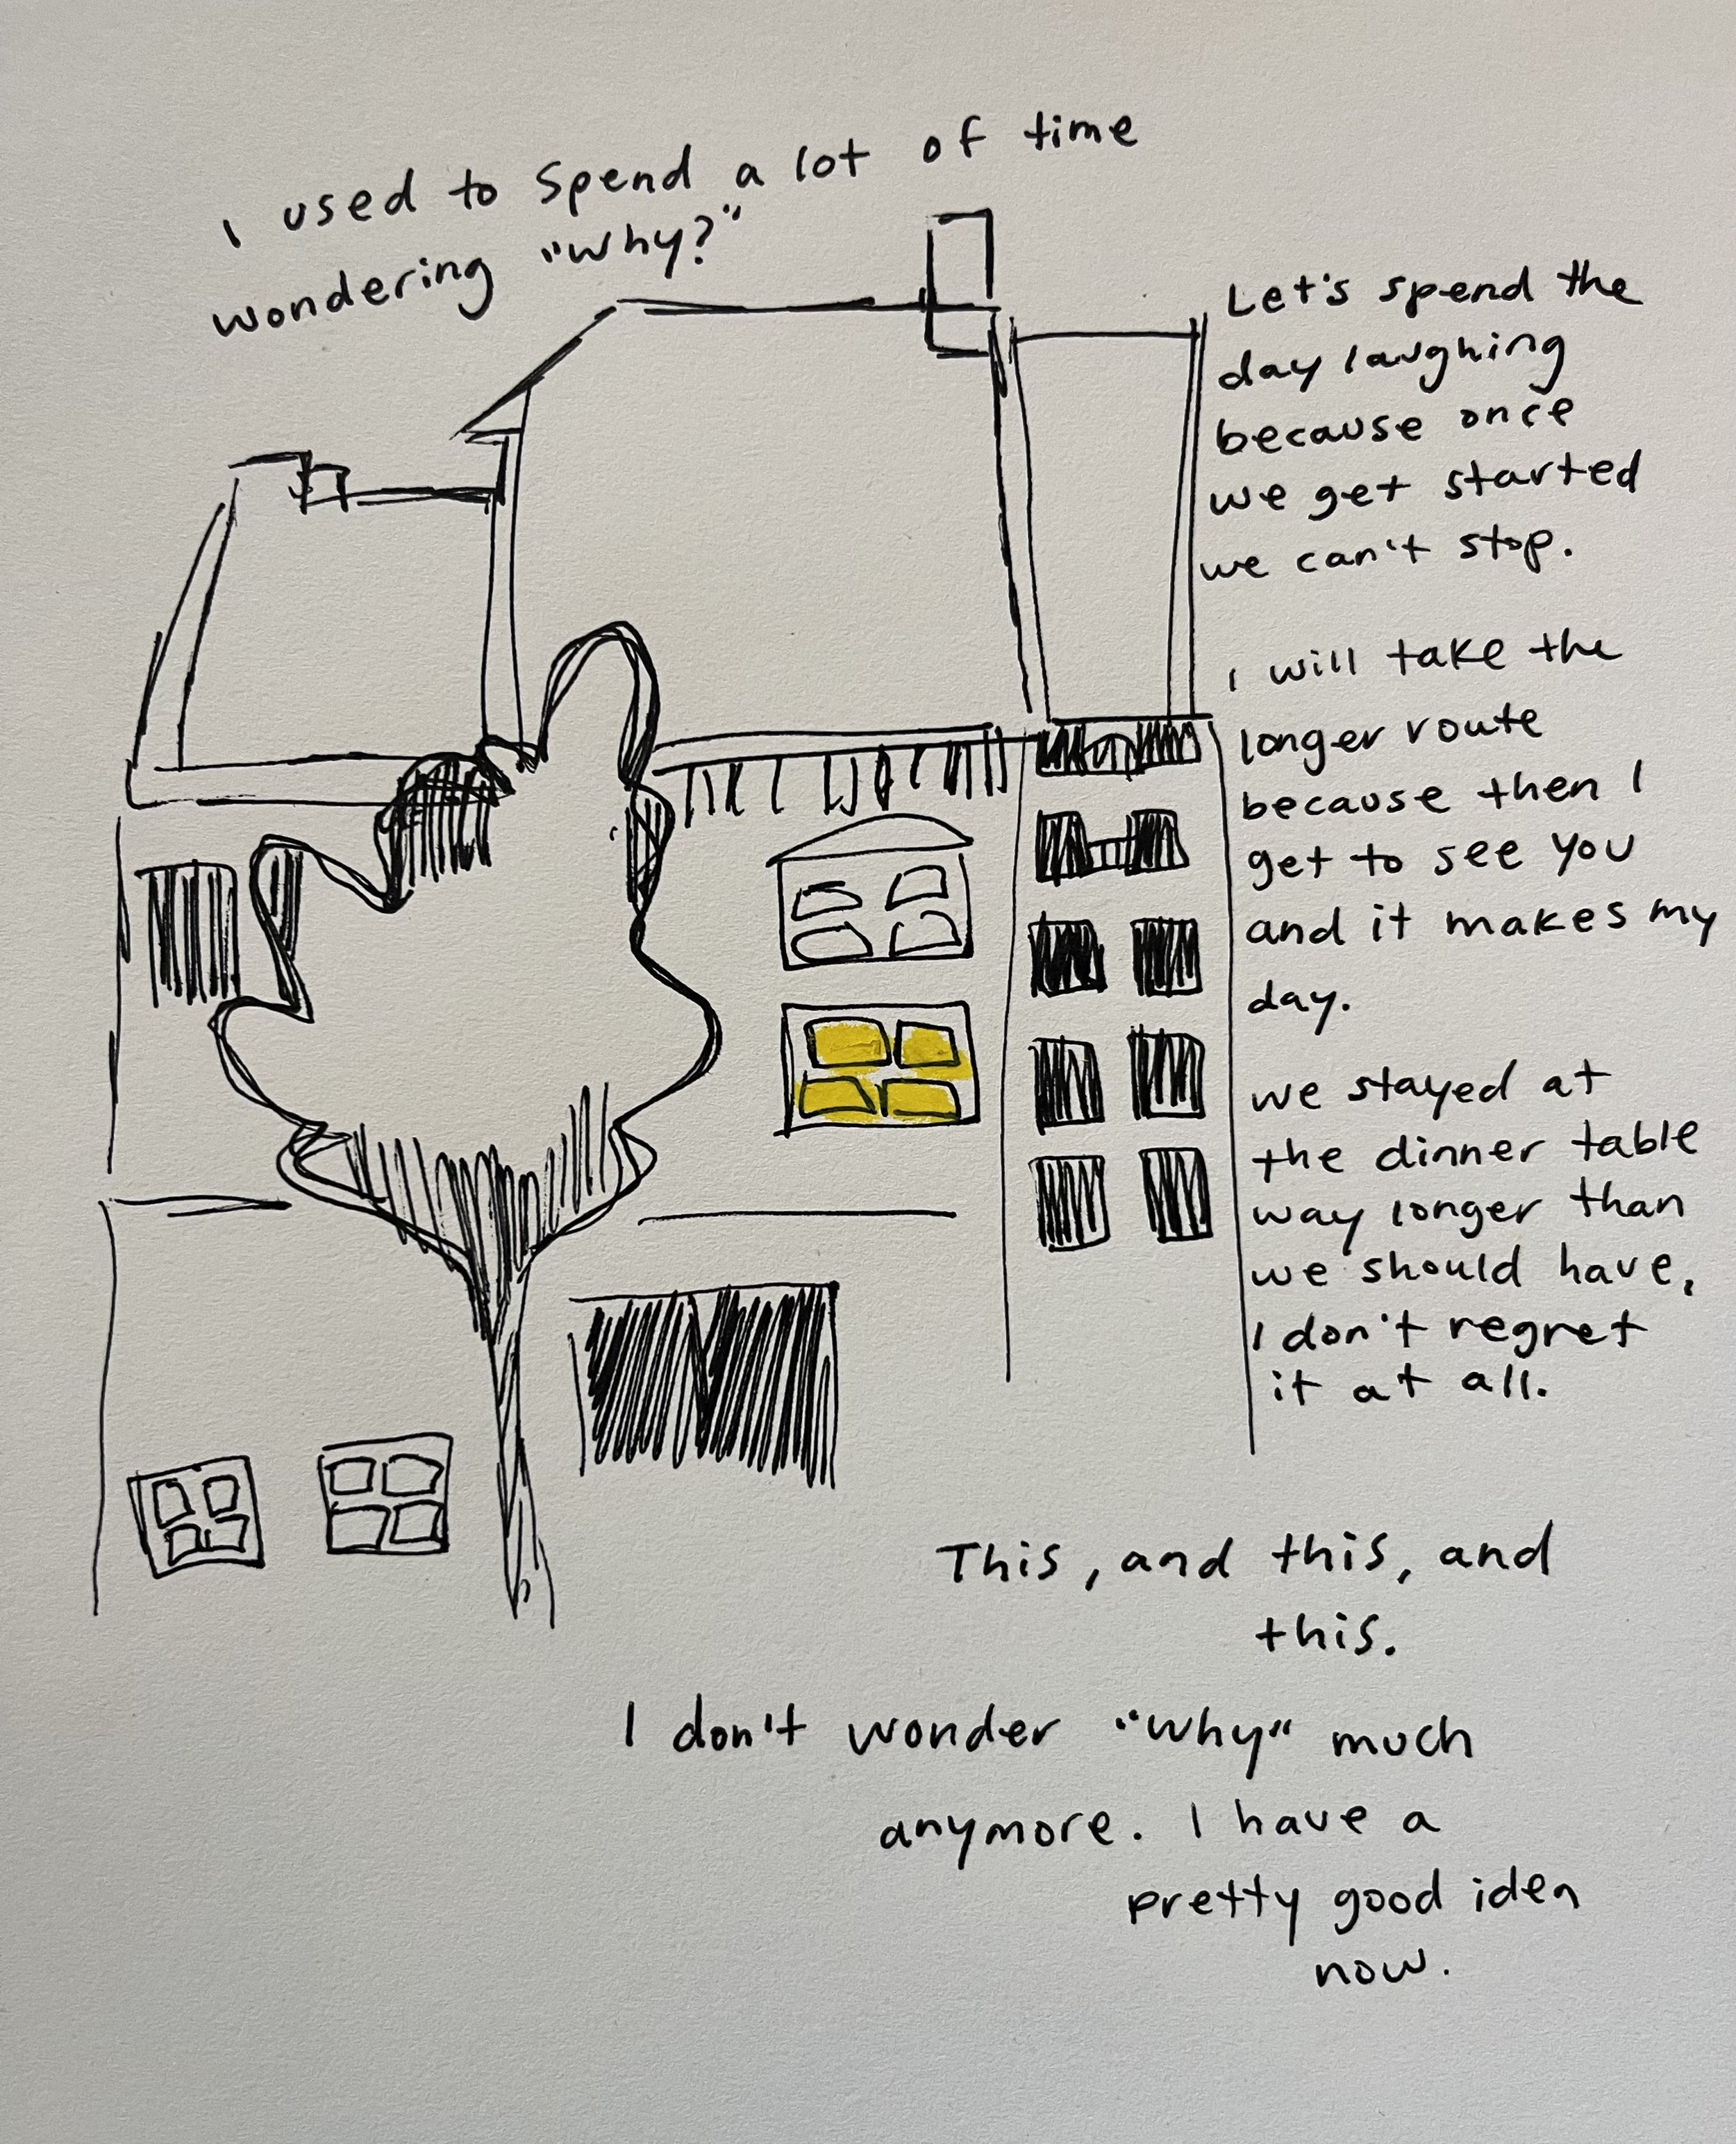 I used to spend a lot of time
wondering "why?"
Let's spend the
day laughing
because once
we get started
we can't stop.
I will take the
longer route
because then I
get to see you
and it makes my
day.
we stayed at
the dinner table
way longer than
we should have,
I don't regret
it at all.
This, and this, and
this.
I don't wonder "why" much
anymore. I have a
pretty good idea
now.